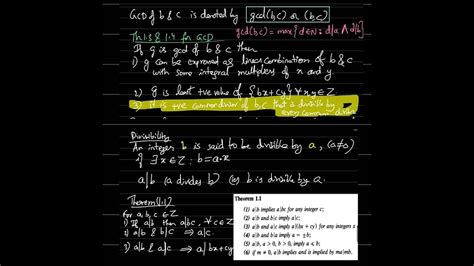 GCD of b & c is denoted by gcd(b,c) or (b,c)
Th 1.3 & 1.4 for GCD
gcd(b,c) = max{d∈ℕ : d|a ∧ d|b}
If g is gcd of b & c then
1) g can be expressed as linear combinations of b & c
with some integral multipliers of x and y.
2) g is least +ve value of {bx+cy} ∀ x,y ∈ Z.
3) it is +ve common divisor of b,c that is divisible by
every common divisor
Divisibility:
An integer b is said to be divisible by a, (a≠0)
if ∃ x∈Z : b=a·x
a|b (a divides b) (or b is divisible by a.
Theorem(1.1)
For a,b,c ∈ Z
1) If a|b then a|bc, ∀ c∈Z
2) a|b & b|c ⇒ a|c.
3) a|b & a|c ⇒ a|bx+cy
Theorem 1.1
(1) a|b implies a|bc for any integer c;
(2) a|b and b|c imply a|c;
(3) a|b and a|c imply a|(bx + cy) for any integers x
(4) a|b and b|a imply a = ±b;
(5) a|b, a > 0, b > 0, imply a ≤ b;
(6) if m ≠ 0, a|b implies and is implied by ma|mb.